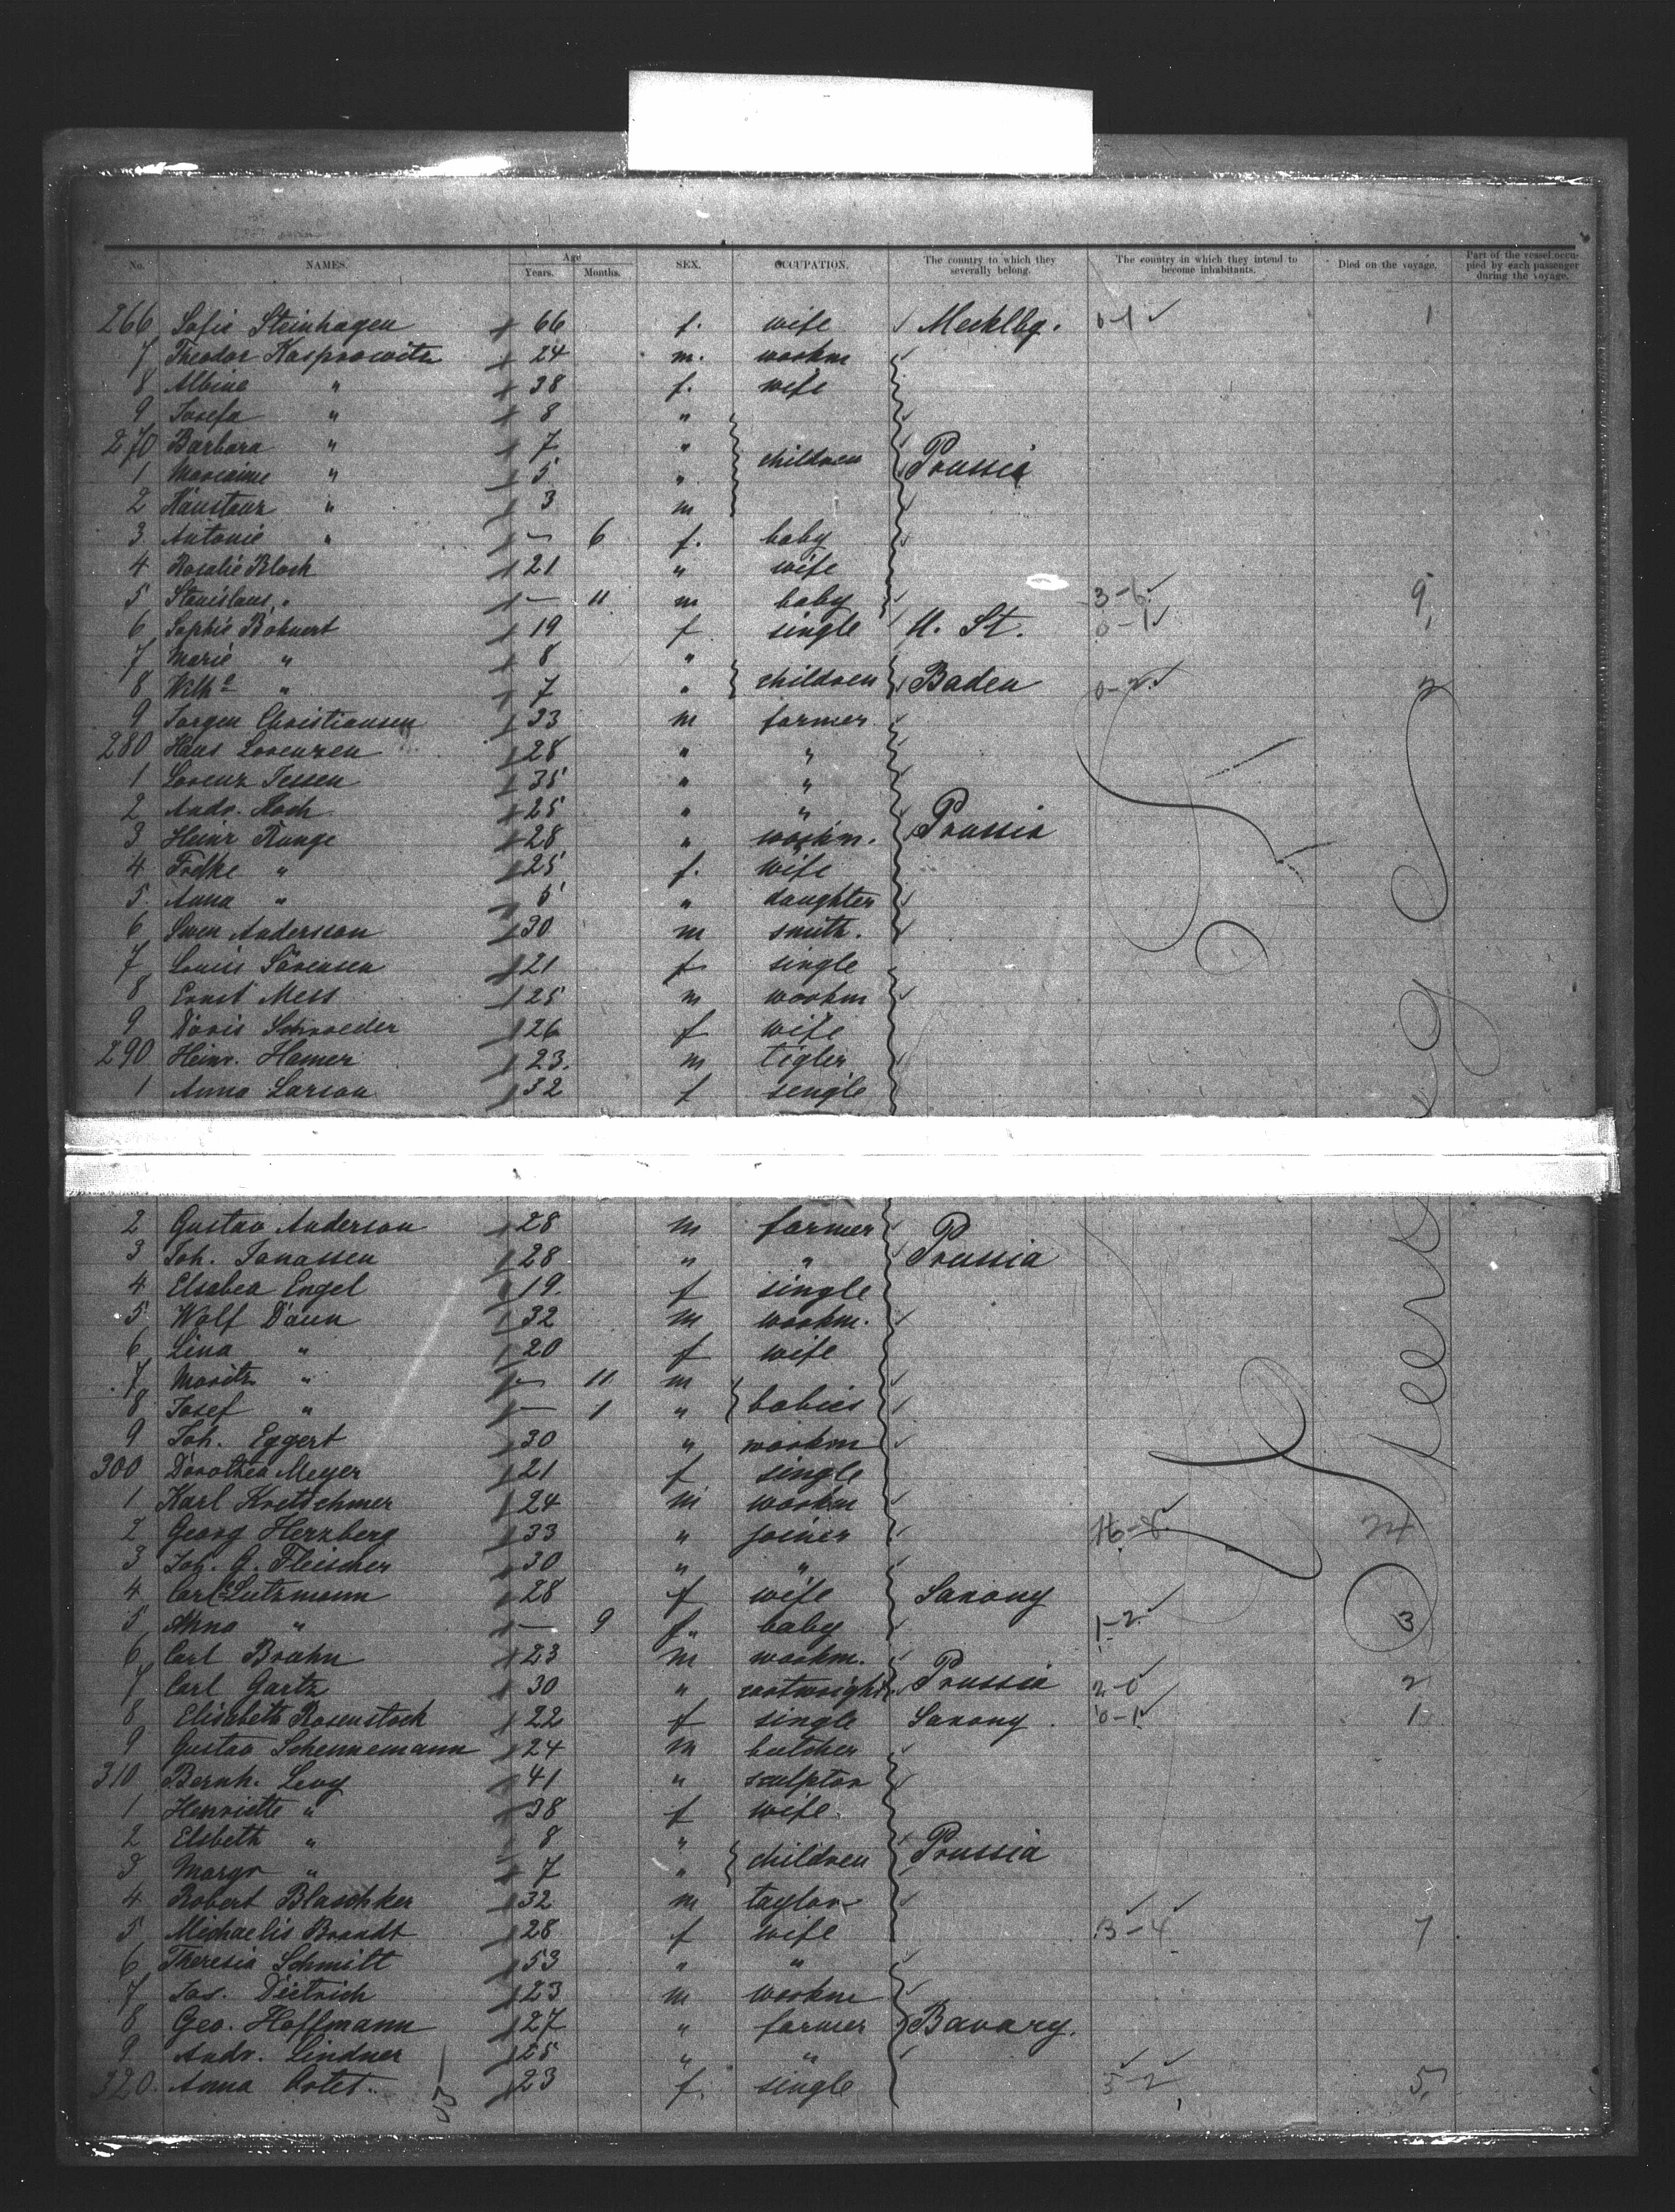 No. NAMES. Age Years. Months. SEX. OCCUPATION. The country to which they severally belong. The country in which they intend to become inhabitants. Died on the voyage. Part of the vessel occupied by each passenger during the voyage.
266 Sofie Steinhagen 66 f. wife Mecklbg. 0-1 1
7 Theodor Kasprowitz 24 m. workm
8 Albina " 38 f. wife
9 Josefa " 8 "
270 Barbara " 7 " children Prussia
1 " 5 "
2 " 3 m
3 Antonie " — 6 f. baby
4 Rosalie Bloch 21 " wife
5 Stanislaus " — 11 m baby 3-6 9
6 Sophie Bohnert 19 f single U. St. 0-1 1
7 Marie " 8 "
8 Wilhe " 7 " children Baden 0-2 2
9 Jorgen Christiansen 33 m farmer
280 Hans Lorenzen 28 " "
1 Lorenz Jessen 35 " "
2 Andr. Koch 25 " " Prussia
3 Heinr Runge 28 " workm.
4 Fredke " 25 f. wife
5 Anna " 5 " daughter
6 Swen Andersson 30 m smith.
7 Louis Sörensen 21 f single
8 Ernst Mess 25 m workm
9 Doris Schroeder 26 f wife
290 Heinr. Hamer 23. m tigler
1 Anna Larson 32 f single
2 Gustav Anderson 28 m farmer Prussia
3 Joh. Janassen 28 " "
4 Elsabea Engel 19. f single
5 Wolf Daun 32 m workm.
6 Lina " 20 f wife
7 Moritz " — 11 m
8 Josef " — 1 " babies
9 Joh. Eggert 30 " workm
300 Dorothea Meyer 21 f single
1 Karl Kretschmer 24 m workm
2 Georg Herzberg 33 " joiner 16-8 24
3 Joh. G. Fleischer 30 " "
4 Carl Lutzmann 28 f wife Saxony
5 Anna " — 9 f " baby 1-2 3
6 Carl Brahn 23 m workm.
7 Carl Gartz 30 " cartwright Prussia 2-0 2
8 Elisabeth Rosenstock 22 f single Saxony 0-1 1
9 Gustav Schennemann 24 m butcher
310 Bernh. Levy 41 " sculptor
1 Henriette " 38 f wife
2 Elsbeth " 8 " Prussia
3 Margr " 7 " children
4 Robert Blaschker 32 m taylor
5 Michaelis Brandt 28 f wife 3-4 7
6 Theresia Schmitt 53 " "
7 Jos. Dietrich 23 m workm
8 Geo. Hoffmann 27 " farmer Bavary.
9 Andr. Lindner 25 " "
320. Anna 23 f. single 3-2 5
55